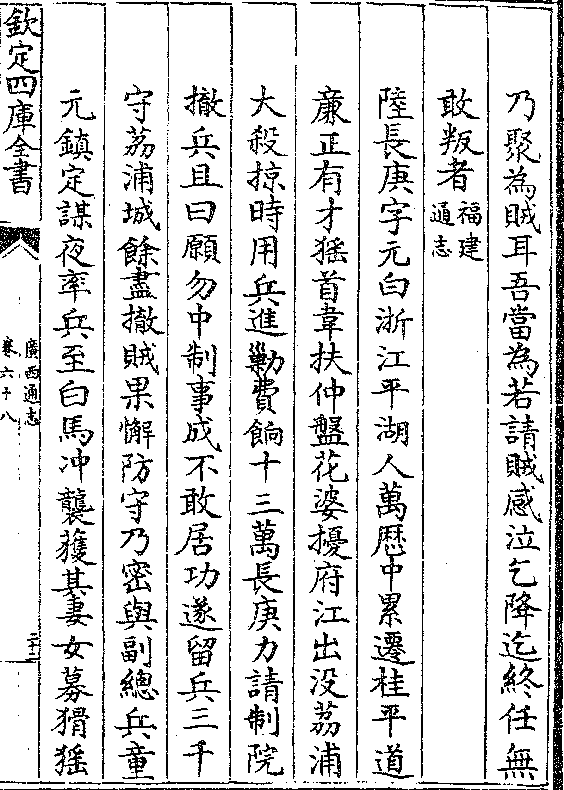 乃聚為賊耳吾當為若請賊感泣乞降迄終任無
敢叛者福建通志
陸長庚字元白浙江平湖人萬厯中累遷桂平道
亷正有才猺首韋扶仲盤花婆擾府江出没荔浦
大殺掠時用兵進勦費餉十三萬長庚力請制院
撤兵且曰願勿中制事成不敢居功遂留兵三千
守荔浦城餘盡撤賊果懈防守乃密與副總兵童
元鎮定謀夜率兵至白馬冲襲獲其妻女募猾猺
欽定四庫全書
廣西通志
卷六十八
三十二